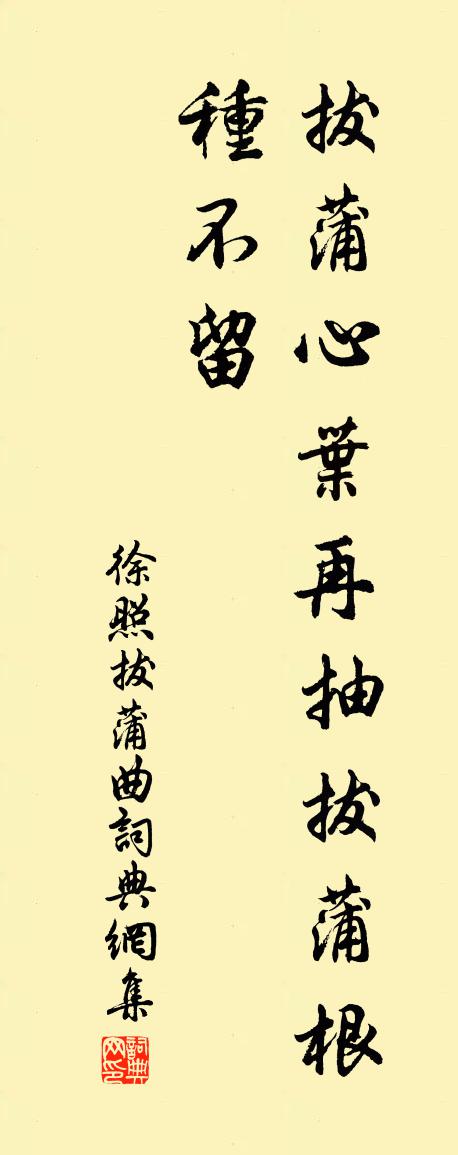 拔蒲心葉再抽拔蒲根
種不留
徐照拔蒲曲詞典網集
詞典网印